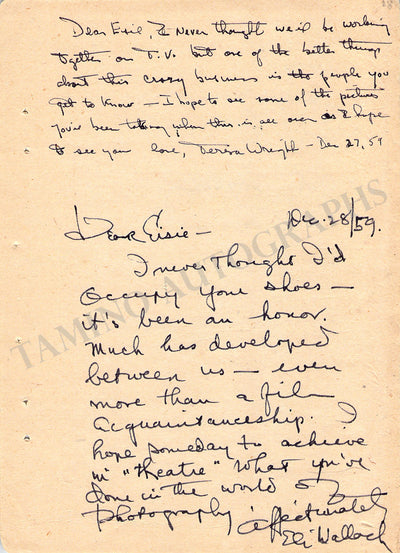 Dear Eisie, I never thought we'd be working
together on T.V. but one of the better things
about this crazy business is the people you
get to know — I hope to see some of the pictures
you've been taking when this is all over as I hope
to see you love, Teresa Wright — Dec 27, 59
Dec. 28/59.
Dear Eisie —
I never thought I'd
occupy your shoes —
it's been an honor.
Much has developed
between us — even
more than a film
acquaintanceship. I
hope someday to achieve
in "theatre" what you've
done in the world of
photography.
affectionately
Eli Wallach
TAMINO AUTOGRAPHS